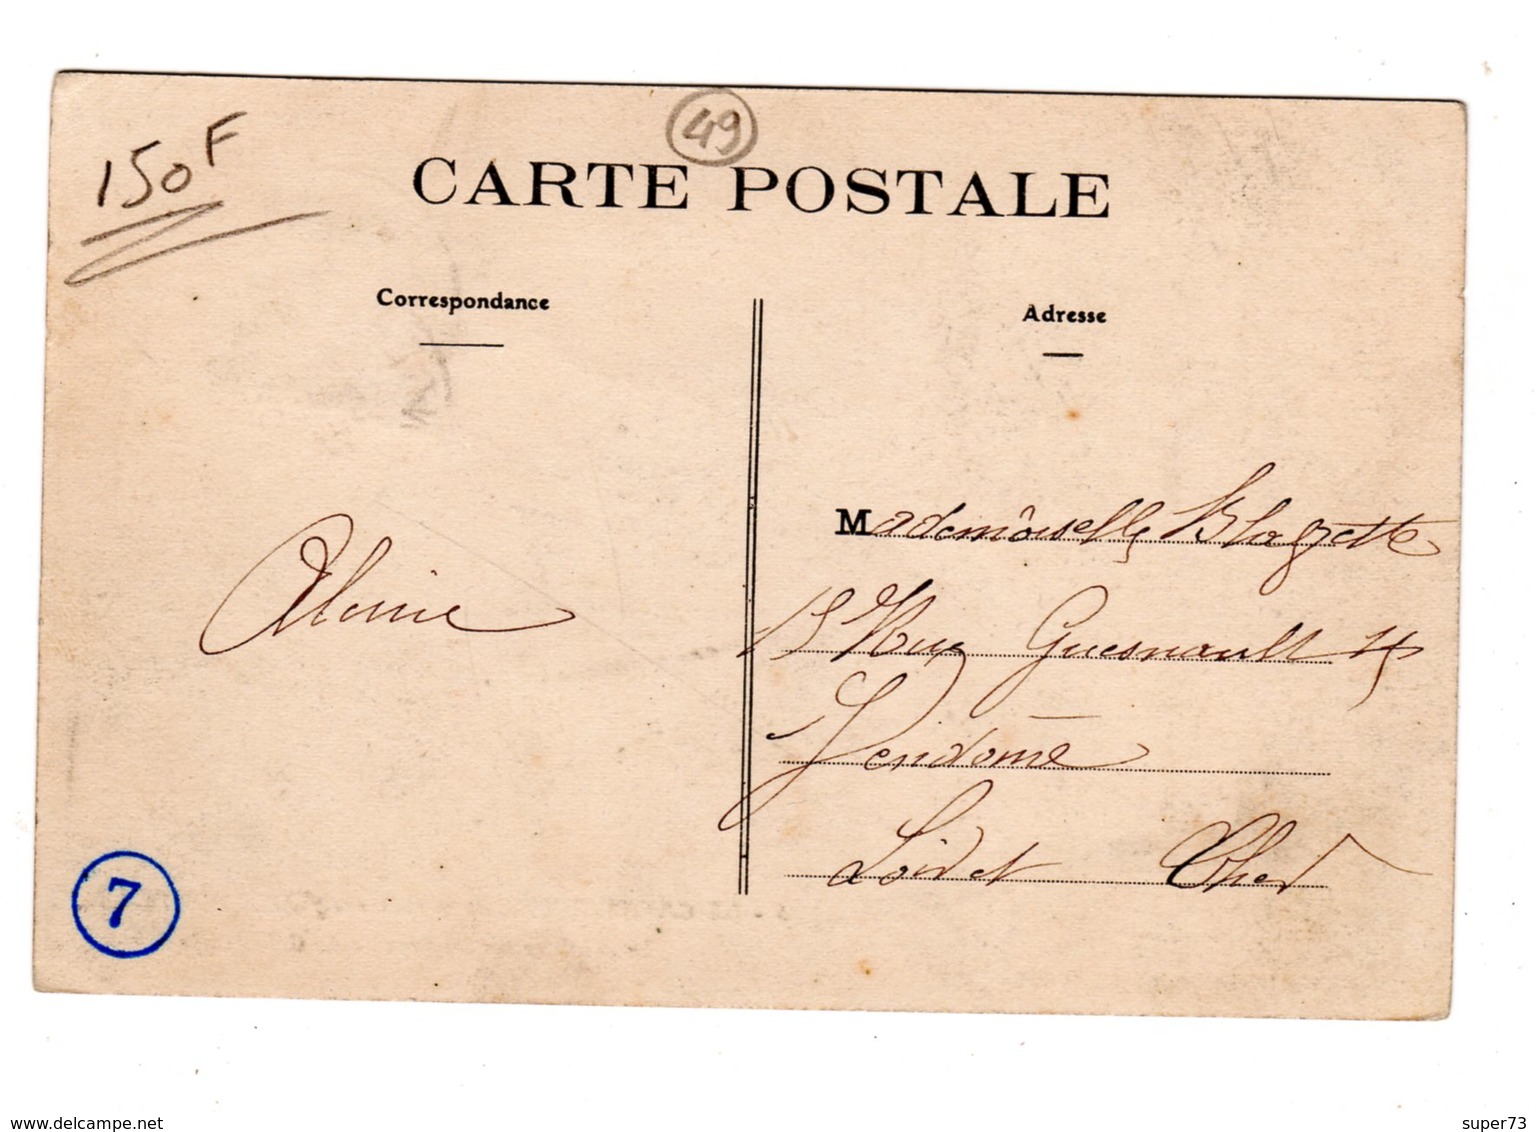 150F
49
CARTE POSTALE
Correspondance
Adresse
Mademoiselle Blagette
Rue Guesnault
Vendôme
Loir et Cher
7
www.delcampe.net
super73